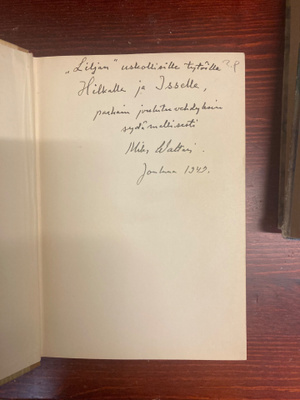 „Liljan" uskollisille tytöille
Hilkalle ja Isselle,
parhain joulutervehdyksin
sydämellisesti
Mika Waltari.
Jouluna 1949.